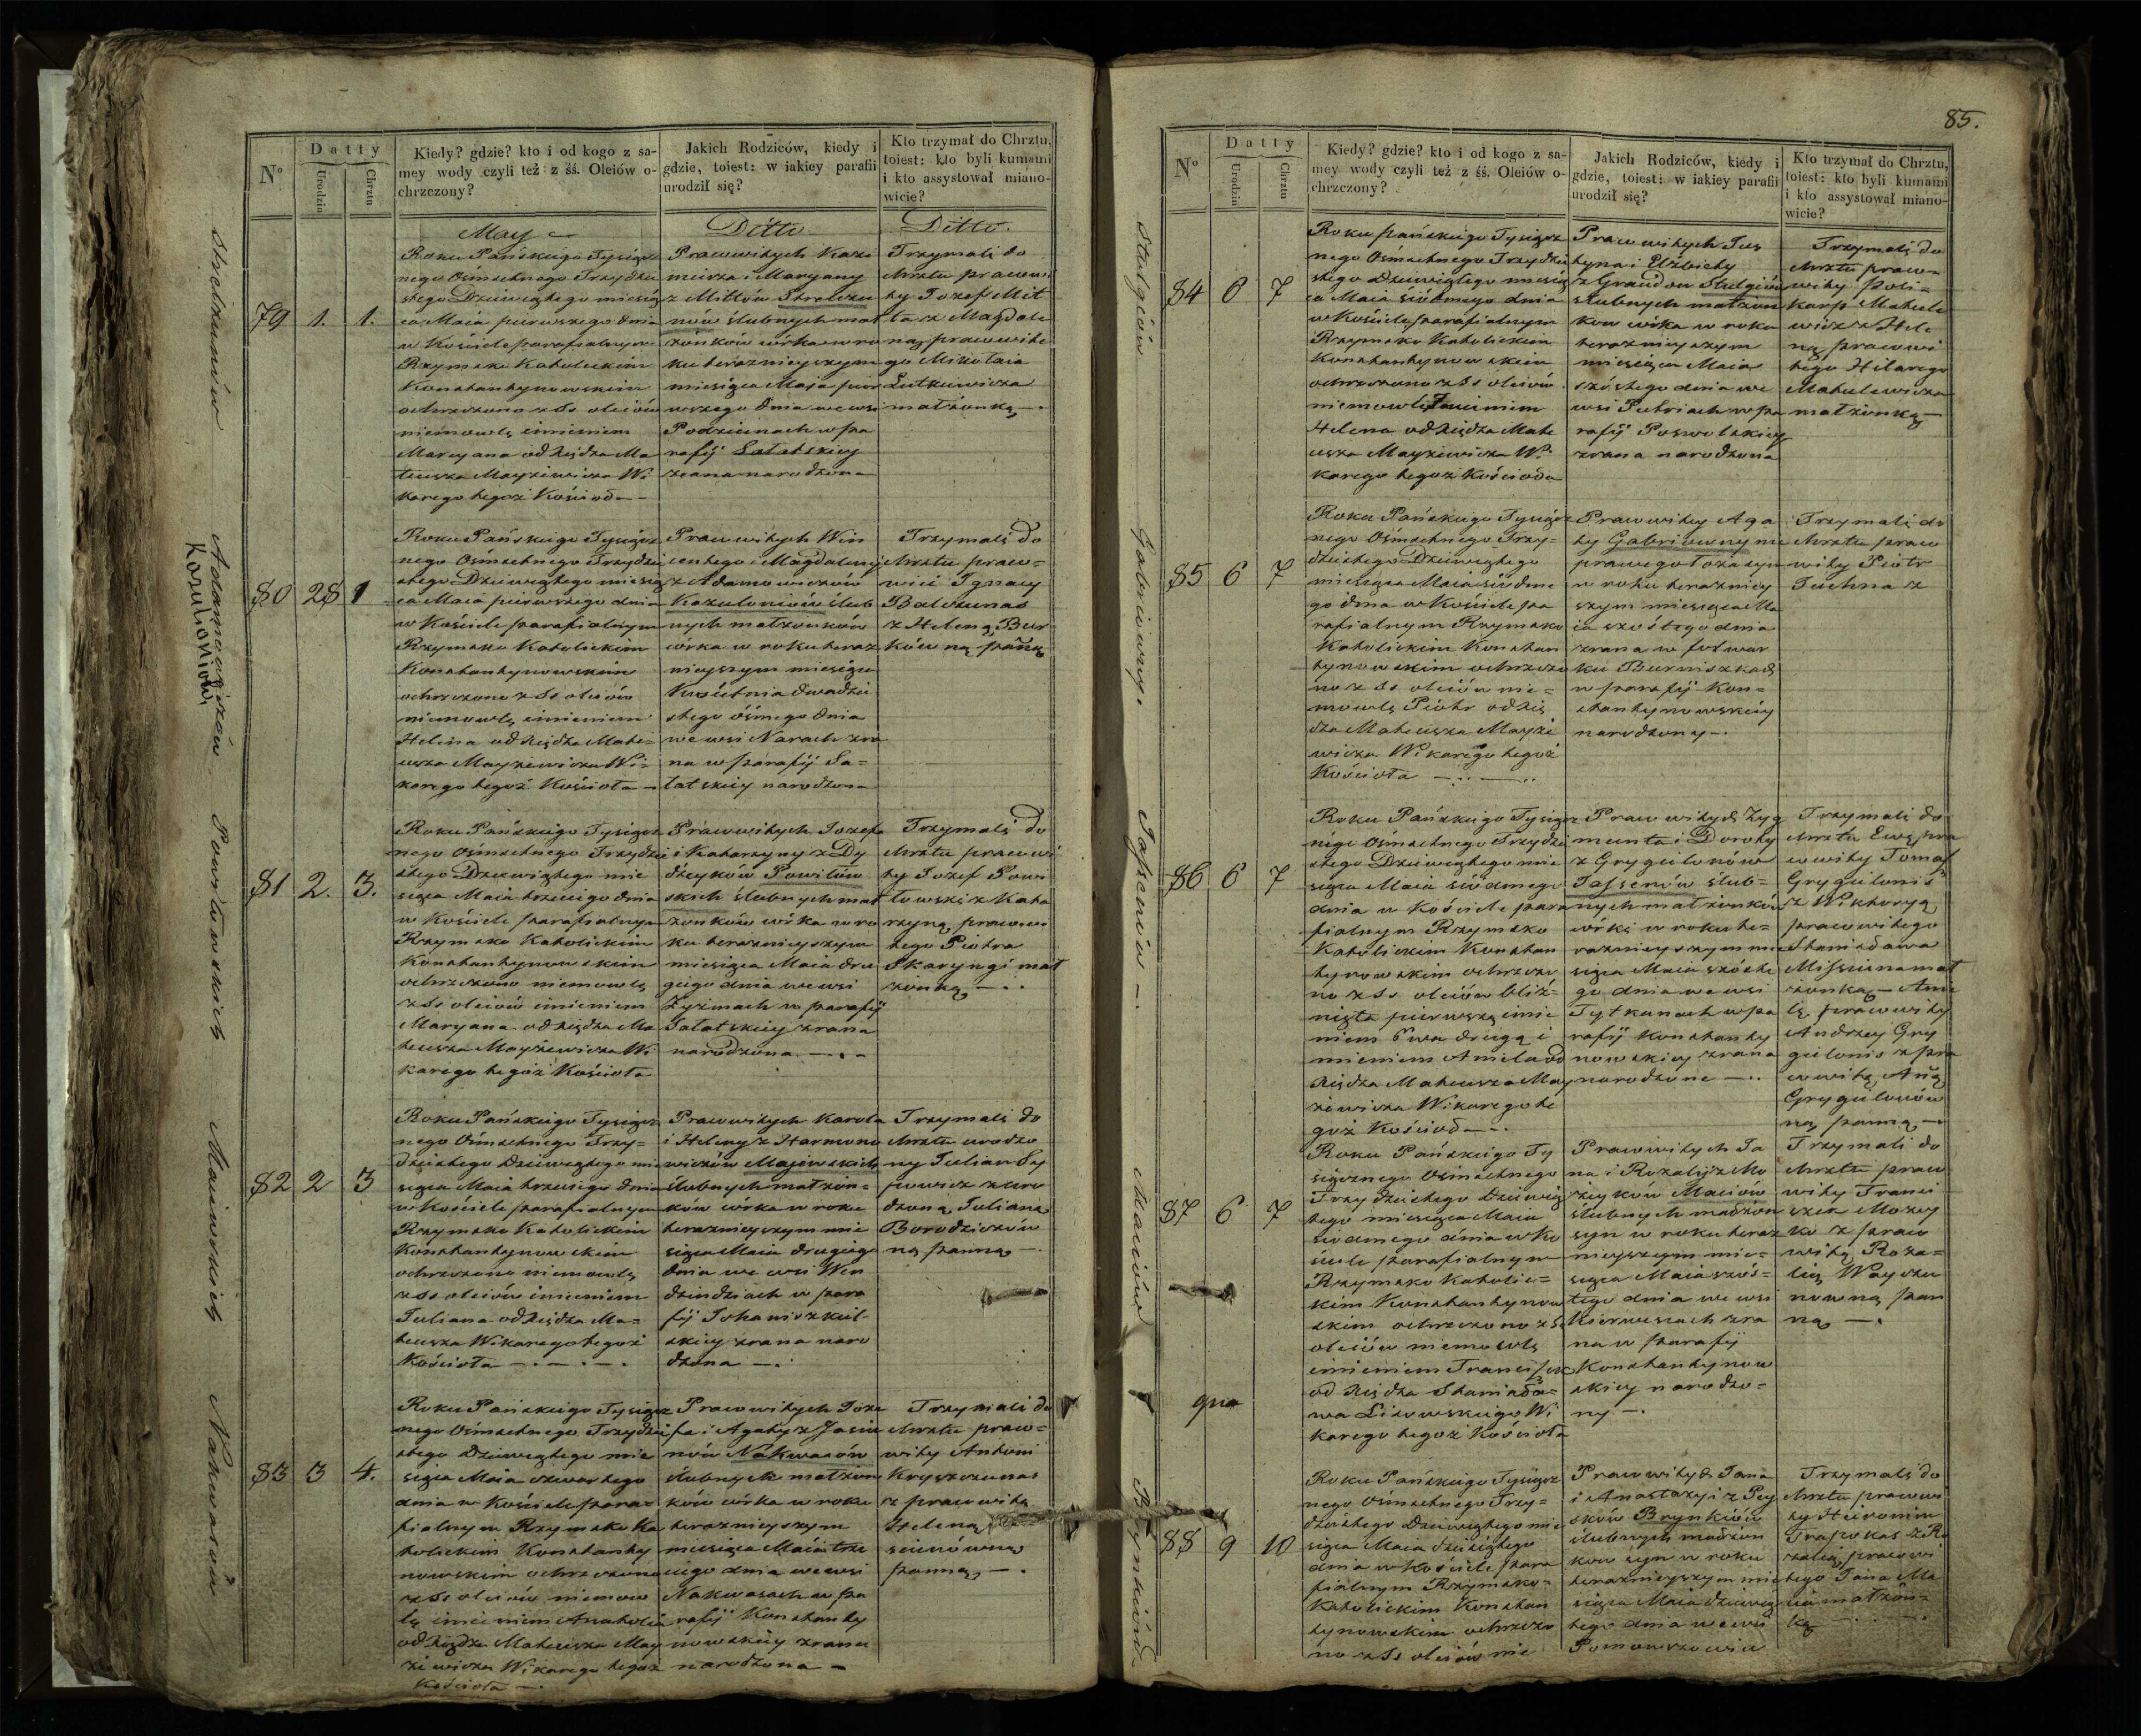 85.
N°
Datty
Urodzin
Chrztu
Kiedy? gdzie? kto i od kogo z sa-
mey wody czyli też z śś. Oleiów o-
chrzczony?
Jakich Rodziców, kiedy i
gdzie, toiest: w iakiey parafii
urodził się?
Kto trzymał do Chrztu,
toiest: kto byli kumami
i kto assystował miano-
wicie?
May
Ditto
Ditto.
79
1.
1.
Roku Pańskiego Tysiącz
nego Ośmsetnego Trzydzie
stego Dziewiątego miesią
ca Maia pierwszego dnia
w Kościele parafialnym
Rzymsko Katolickim
Konstantynowskim
ochrzczono z Ss oleiów
niemowlę imieniem
Maryana od Xiędza Ma
teusza Mayżiewicza Wi
karego tegoż Kościoła
Prawowitych Kazi
mierza i Maryany
z Mittów Strelczu
nów ślubnych mał
żonków córka w ro
ku teraznieyszym
miesiąca Maja pier
wszego dnia we wsi
Podzienach w pa
rafij Sałatskiey
zrana narodzona
Trzymali do
chrztu prawowi
ty Jozef Mit
ta z Magdale
ną prawowite
go Mikołaia
Lutkiewicza
małżonką
80
28
1
Roku Pańskiego Tysiącz
nego Ośmsetnego Trzydzie
stego Dziewiątego miesią
ca Maia pierwszego dnia
w Kościele parafialnym
Rzymsko Katolickim
Konstantynowskim
ochrzczono z Ss oleiów
niemowlę imieniem
Helena od Xiędza Mate-
usza Mayżewicza Wi-
karego tegoż Kościoła
Prawowitych Win
centego i Magdaleny
z Adamowiczów
Kozulioniów ślub
nych małżonków
córka w roku teraz
nieyszym miesiącu
Kwietnia dwadzie
stego ósmego dnia
we wsi Narach zra
na w parafij Sa-
łatskiey narodzona
Trzymali do
chrztu praw-
wici Ignacy
Balczunas
z Heleną Bur
ków ną panną
81
2.
3.
Roku Pańskiego Tysiącz
nego Ośmsetnego Trzydzie
stego Dziewiątego mie
siąca Maia trzeciego dnia
w Kościele parafialnym
Rzymsko Katolickim
Konstantynowskim
ochrzczono niemowlę
z Ss oleiów imieniem
Maryana od Xiędza Ma
teusza Mayżewicza Wi
karego tegoż Kościoła
Prawowitych Jozefa
i Katarzyny z Dy
dżyków Powiłów
skich ślubnych mał
żonków córka w ro
ku teraznieyszym
miesiąca Maia dru
giego dnia we wsi
Żyżmach w parafij
Sałatskiey zrana
narodzona.
Trzymali do
chrztu prawowi
ty Jozef Powi
łowski z Kata
rzyną prawowi
tego Piotra
Skaryngi mał
żonką
82
2
3
Roku Pańskiego Tysiącz
nego Ośmsetnego Trzy-
dziestego Dziewiątego mie
siąca Maia trzeciego dnia
w Kościele parafialnym
Rzymsko Katolickim
Konstantynowskim
ochrzczono niemowlę
z Ss oleiów imieniem
Juliana od Xiędza Ma-
teusza Wikarego tegoż
Kościoła
Prawowitych Karola
i Heleny z Harmono
wiczów Majewskich
ślubnych małżon-
ków córka w roku
teraznieyszym mie
siąca Maia drugiego
dnia we wsi Wen
dzindziach w para
fij Johaniszkiel-
skiey zrana naro
dzona
Trzymali do
chrztu urodzo
ny Julian Sy
powicz z uro
dzoną Julianą
Borodziczów
ną panną
83
3
4.
Roku Pańskiego Tysiącz
nego Ośmsetnego Trzydzie
stego Dziewiątego mie
siąca Maia czwartego
dnia w Kościele para-
fialnym Rzymsko Ka
tolickim Konstanty
nowskim ochrzczono
z Ss oleiów niemow
lę imieniem Anatolia
od Xiędza Mateusza May
żewicza Wikarego tegoż
Kościoła
Prawowitych Joze
fa i Agaty z Jasiu
nów Nakwasów
ślubnych małżon
ków córka w roku
teraznieyszym
miesiąca Maia trze
ciego dnia we wsi
Nakwasach w pa
rafij Konstanty
nowskiey zrana
narodzona
Trzymali do
chrztu praw-
wity Antoni
Kryszczunas
z prawowitą
Heleną
scienówną
panną
Strelczuniów
Adamowiczów
Kozulioniów
Powiłowskich
Maiewskich
Nakwasów
N°
Datty
Urodzin
Chrztu
Kiedy? gdzie? kto i od kogo z sa-
mey wody czyli też z śś. Oleiów o-
chrzczony?
Jakich Rodziców, kiedy i
gdzie, toiest: w iakiey parafii
urodził się?
Kto trzymał do Chrztu,
toiest: kto byli kumami
i kto assystował miano-
wicie?
84
6
7
Roku pańskiego Tysiącz
nego Ośmsetnego Trzydzie
stego Dziewiątego miesią
ca Maia siódmego dnia
w Kościele parafialnym
Rzymsko Katolickim
Konstantynowskim
ochrzczono z Ss oleiów
niemowlę imieniem
Helena od Xiędza Mate
usza Mayżewicza Wi
karego tegoż Kościoła
Prawowitych Jus
tyna i Elżbiety
z Graudow Stulgiów
ślubnych małżon
kow córka w roku
teraznieyszym
miesiąca Maia
szóstego dnia we
wsi Putriach w pa
rafij Poswolskiey
zrana narodzona
Trzymali do
chrztu praw-
wity Poli-
karp Matule
wicz z Hele
ną prawowi
tego Hilarego
Matulewicza
małżonką
85
6
7
Roku Pańskiego Tysiącz
nego Ośmsetnego Trzy-
dziestego Dziewiątego
miesiąca Maia siódme
go dnia w Kościele pa
rafialnym Rzymsko
Katolickim Konstan
tynowskim ochrzczo
no z Ss oleiów nie-
mowlę Piotr od Xię
dza Mateusza Mayże
wicza Wikarego tegoż
Kościoła
Prawowity Aga
ty Gabriowny nie
prawego łoża syn
w roku terazniey
szym miesiąca Ma
ia szóstego dnia
zrana w folwar
ku Burniszkach
w parafij Kon-
stantynowskiey
narodzony
Trzymali do
chrztu praw
wity Piotr
Juchna z
86
6
7
Roku Pańskiego Tysiącz
nego Ośmsetnego Trzydzie
stego Dziewiątego mie
siąca Maia siódmego
dnia w Kościele para
fialnym Rzymsko
Katolickim Konstan
tynowskim ochrzczo
no z Ss oleiów bliź-
nięta pierwszą imie
niem Ewa drugą i
mieniem Aniela od
Xiędza Mateusza May
żewicza Wikarego te
goż Kościoła
Prawowitych Zyg
munta i Doroty
z Grygulonów
Jassenów ślub-
nych małżonków
córki w roku te-
raznieyszym mie
siąca Maia szóste
go dnia we wsi
Tytkunach w pa
rafij Konstanty
nowskiey zrana
narodzone
Trzymali do
chrztu Ewę pra
wowity Tomasz
Grygulonis
z Wiktoryą
prawowitego
Stanisława
Missiuna mał
żonką - Anie
lę prawowity
Andrzey Gry
gulonis z pra
wowitą Anną
Grygulonów
ną panną
87
6
7
Roku Pańskiego Ty
siącznego Ośmsetnego
Trzydziestego Dziewią
tego miesiąca Maia
siodmego dnia w Ko
ściele parafialnym
Rzymsko Katolic-
kim Konstantynow
skim ochrzczono z Ss
oleiów niemowlę
imieniem Franciszek
od Xiędza Stanisła-
wa Lisowskiego Wi
karego tegoż Kościoła
Prawowitych Ja
na i Rozalij z Mo
zieyków Maciów
ślubnych małżon
syn w roku teraz
nieyszym mie-
siąca Maia szós-
tego dnia we wsi
Kierwisach zra
na w parafij
Konstantynow
skiey narodzo-
ny
Trzymali do
chrztu praw
wity Franci
szek Mozey
ko z praw
witą Roza-
lią Wayczu
nowną pan
ną
88
9
10
Roku Pańskiego Tysiącz
nego Ośmsetnego Trzy-
dziestego Dziewiątego mie
siąca Maia dziesiątego
dnia w Kościele para
fialnym Rzymsko-
Katolickim Konstan
tynowskim ochrzczo
no z Ss oleiów nie
Prawowitych Jana
i Anastazyi z Pey
sków Brynkiów
ślubnych małżon
kow syn w roku
teraznieyszym mie
siąca Maia dziewią
tego dnia we wsi
Trzymali do
chrztu prawowi
ty Hieronim
Trapokas z Ro
zalią prawowi
tego Jana Ma
cia małżon-
ką
Stulgiów
Gabriowny.
Jassenów
Maciów
Brynkiów